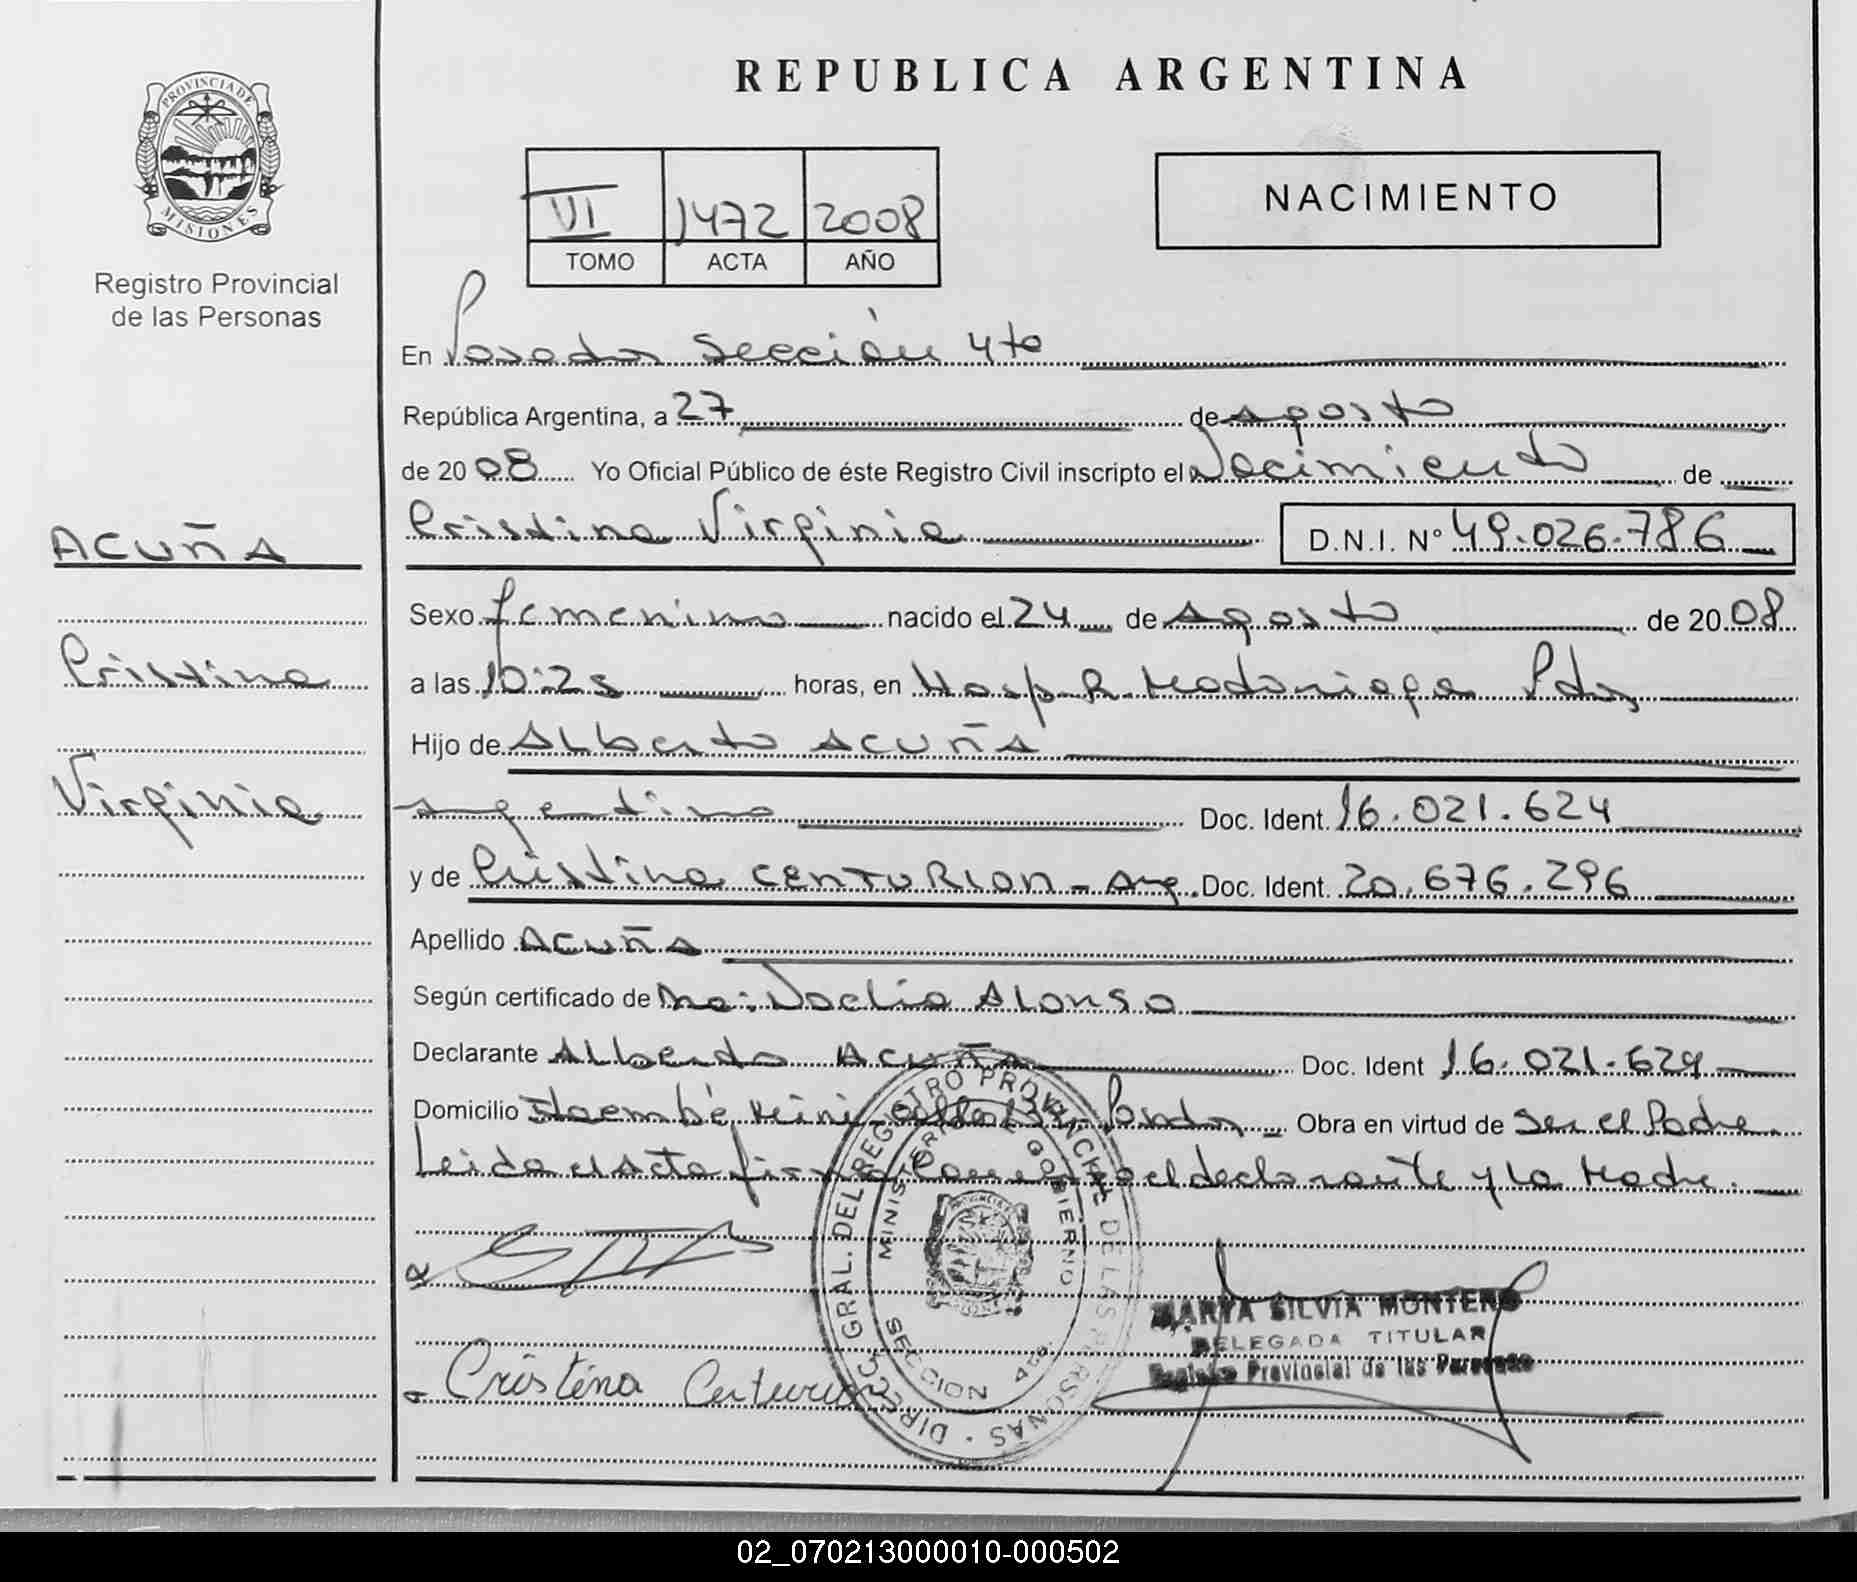 REPUBLICA ARGENTINA
PROVINCIA DE
MISIONES
Registro Provincial
de las Personas
VI 1472 2008
TOMO ACTA AÑO
NACIMIENTO
En Posadas Sección 4ta
República Argentina, a 27 de agosto
de 2008 Yo Oficial Público de éste Registro Civil inscripto el Nacimiento de
Cristina Virginia D.N.I. N° 49.026.786
ACUÑA
Cristina
Virginia
Sexo femenino nacido el 24 de Agosto de 2008
a las 10:25 horas, en Hosp. R. Madariaga Pdas
Hijo de Alberto ACUÑA
argentino Doc. Ident. 16.021.624
y de Cristina CENTURION - Arg. Doc. Ident. 20.676.296
Apellido ACUÑA
Según certificado de Ma: Noelia Alonso
Declarante Alberto ACUÑA Doc. Ident 16.021.624
Domicilio Itaembé Mini Posadas - Obra en virtud de Ser el Padre.
Leida el Acta firma el declarante y la Madre.
DIRECC. GRAL. DEL REGISTRO PROVINCIAL DE LAS PERSONAS
MINISTERIO DE GOBIERNO
SECCION 4ta.
Cristina Centurion
MARYA SILVIA MONTERO
DELEGADA TITULAR
Registro Provincial de las Personas
02_070213000010-000502